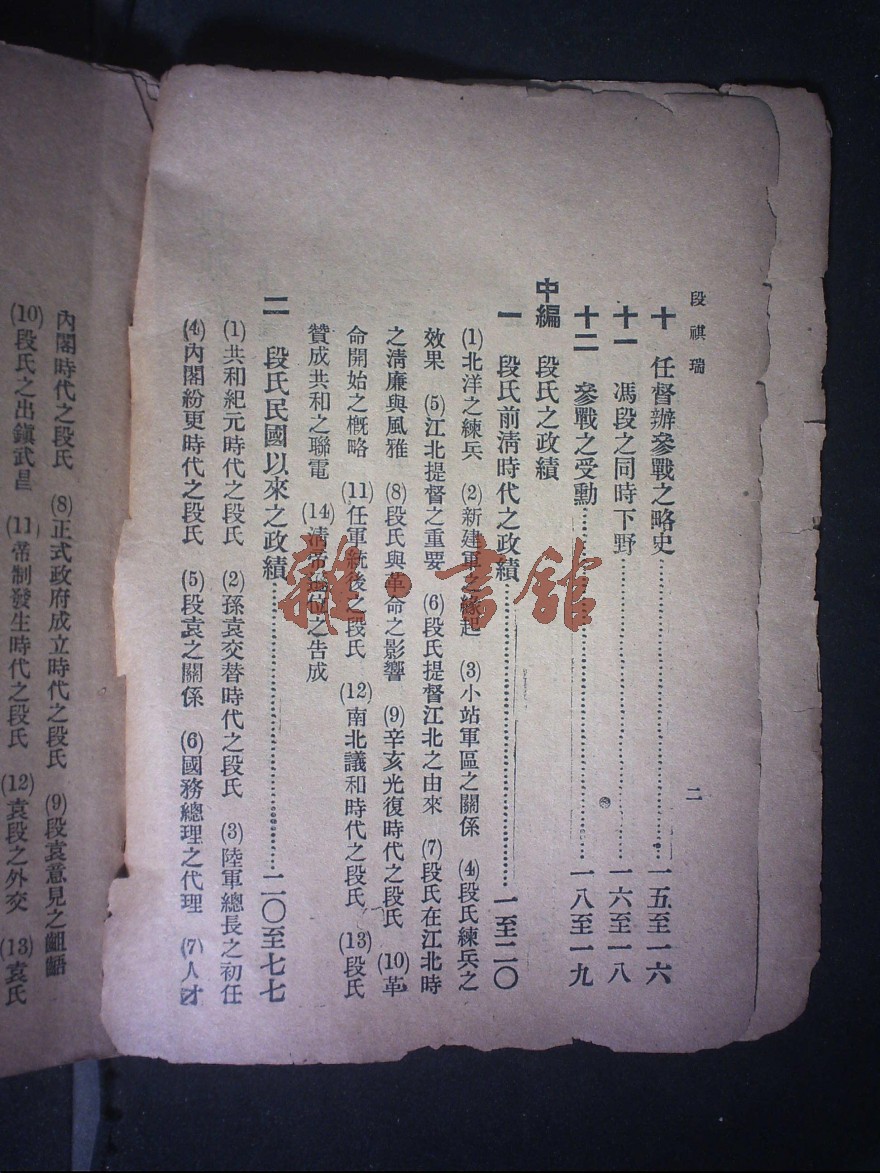 段祺瑞
二
十 任督辦參戰之略史……一五至一六
十一 馮段之同時下野……一六至一八
十二 參戰之受勳……一八至一九
中編 段氏之政績
一 段氏前清時代之政績……一至二〇
(1)北洋之練兵 (2)新建軍之緣起 (3)小站軍區之關係 (4)段氏練兵之
效果 (5)江北提督之重要 (6)段氏提督江北之由來 (7)段氏在江北時
之清廉與風雅 (8)段氏與革命之影響 (9)辛亥光復時代之段氏 (10)革
命開始之概略 (11)任軍統後之段氏 (12)南北議和時代之段氏 (13)段氏
贊成共和之聯電 (14)清帝遜位之告成
二 段氏民國以來之政績……二〇至七七
(1)共和紀元時代之段氏 (2)孫袁交替時代之段氏 (3)陸軍總長之初任
(4)內閣紛更時代之段氏 (5)段袁之關係 (6)國務總理之代理 (7)人才
內閣時代之段氏 (8)正式政府成立時代之段氏 (9)段袁意見之齟齬
(10)段氏之出鎮武昌 (11)帝制發生時代之段氏 (12)袁段之外交 (13)袁氏
雜·書館